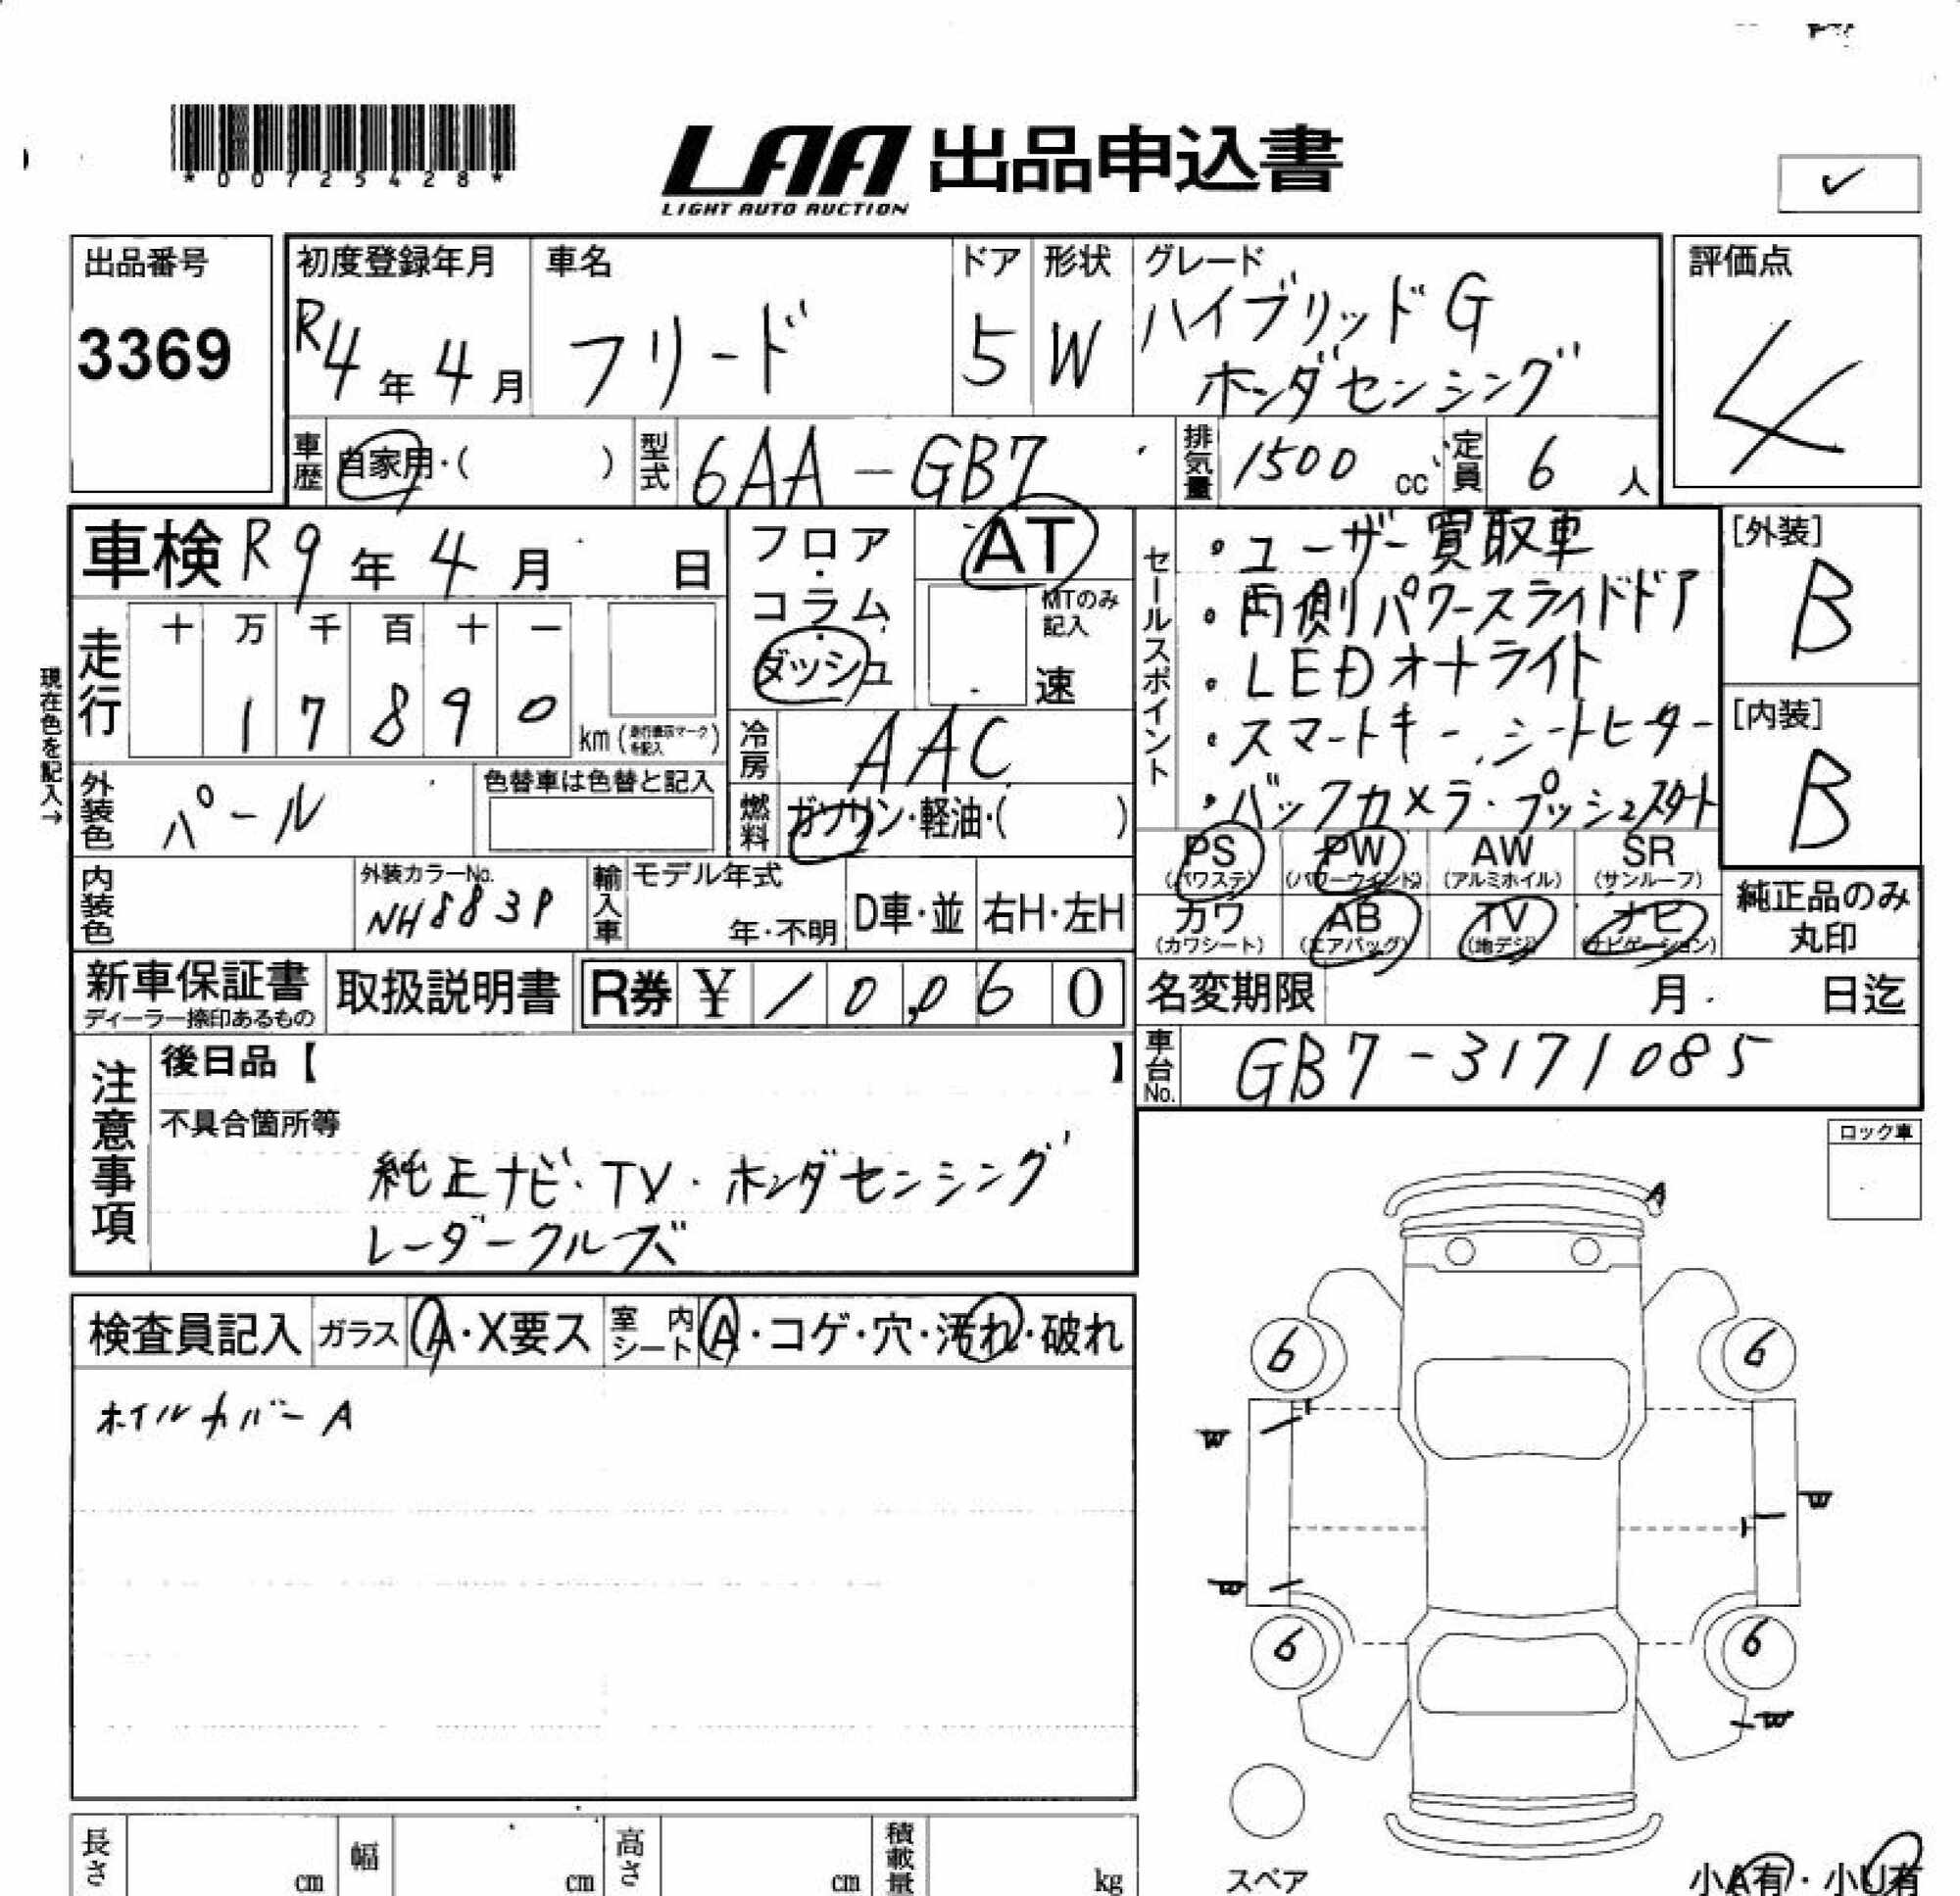 *00725428*
LAA 出品申込書
LIGHT AUTO AUCTION
出品番号
3369
初度登録年月
R4年4月
車名
フリード
ドア
5
形状
W
グレード
ハイブリッド G
ホンダセンシング
評価点
4
車歴
自家用・( )
型式
6AA-GB7
排気量
1500 cc
定員
6人
車検 R9年4月 日
走行
十万千百十一
17890
km (走行表示マークを記入)
現在色を記入→
外装色
パール
色替車は色替と記入
内装色
外装カラーNo.
NH883P
輸入車
モデル年式
年・不明
D車・並
右H・左H
フロア・コラム・ダッシュ
AT
MTのみ記入
速
冷房
AAC
燃料
ガソリン・軽油・( )
セールスポイント
・ユーザー買取車
・両側パワースライドドア
・LEDオートライト
・スマートキー、シートヒーター
・バックカメラ・プッシュスタート
[外装]
B
[内装]
B
PS (パワステ)
PW (パワーウインド)
AW (アルミホイル)
SR (サンルーフ)
カワ (カワシート)
AB (エアバッグ)
TV (地デジ)
ナビ (ナビゲーション)
純正品のみ丸印
新車保証書
ディーラー捺印あるもの
取扱説明書
R券 ¥10,060
名変期限 月 日迄
車台No.
GB7-3171085
注意事項
後日品【 】
不具合箇所等
純正ナビ・TV・ホンダセンシング
レーダークルーズ
検査員記入
ガラス
A・X要ス
室内シート
A・コゲ・穴・汚れ・破れ
ホイルカバーA
ロック車
A
6
6
W
W
W
6
6
W
スペア
小A有・小U有
長さ cm
幅 cm
高さ cm
積載量 kg